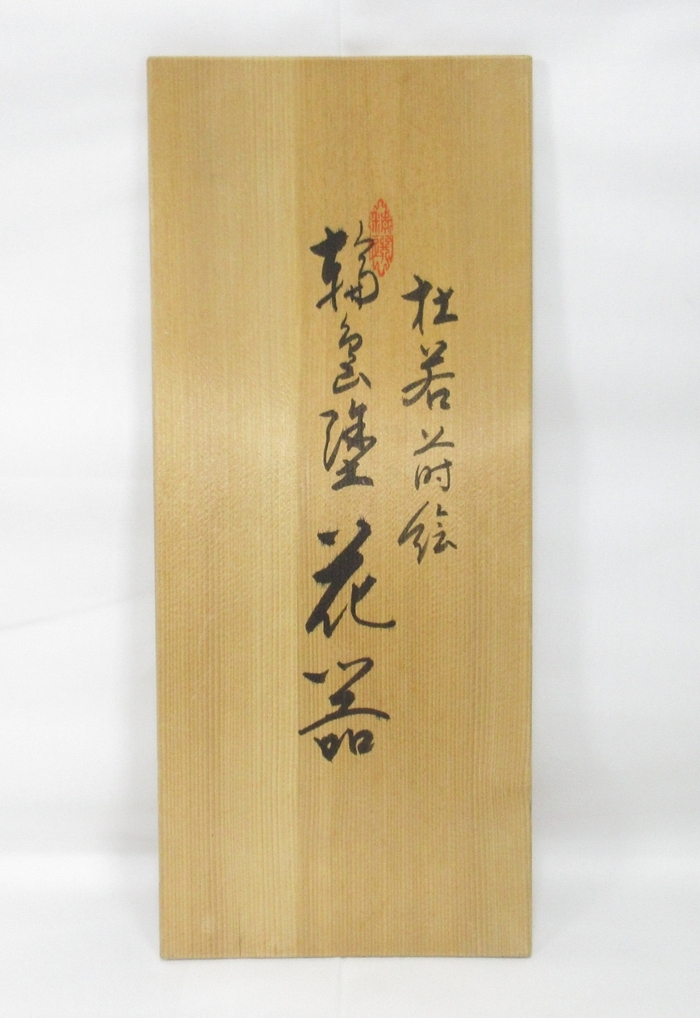 杜若蒔絵
輪島塗 花器